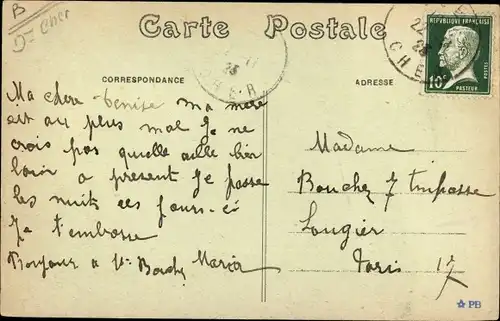 B
Dt Cher
Carte Postale
CORRESPONDANCE
ADRESSE
RÉPUBLIQUE FRANÇAISE
POSTES
10c
PASTEUR
CHER
Ma chere Denise ma mere
est au plus mal je ne
crois pas quelle aille bien
loin a present Je passe
les nuits ces jours-ci
Je t'embrasse
Bonjour a Mr Bouchez Maria
Madame
Bouchez 7 Impasse
Lougier
Paris 17
PB